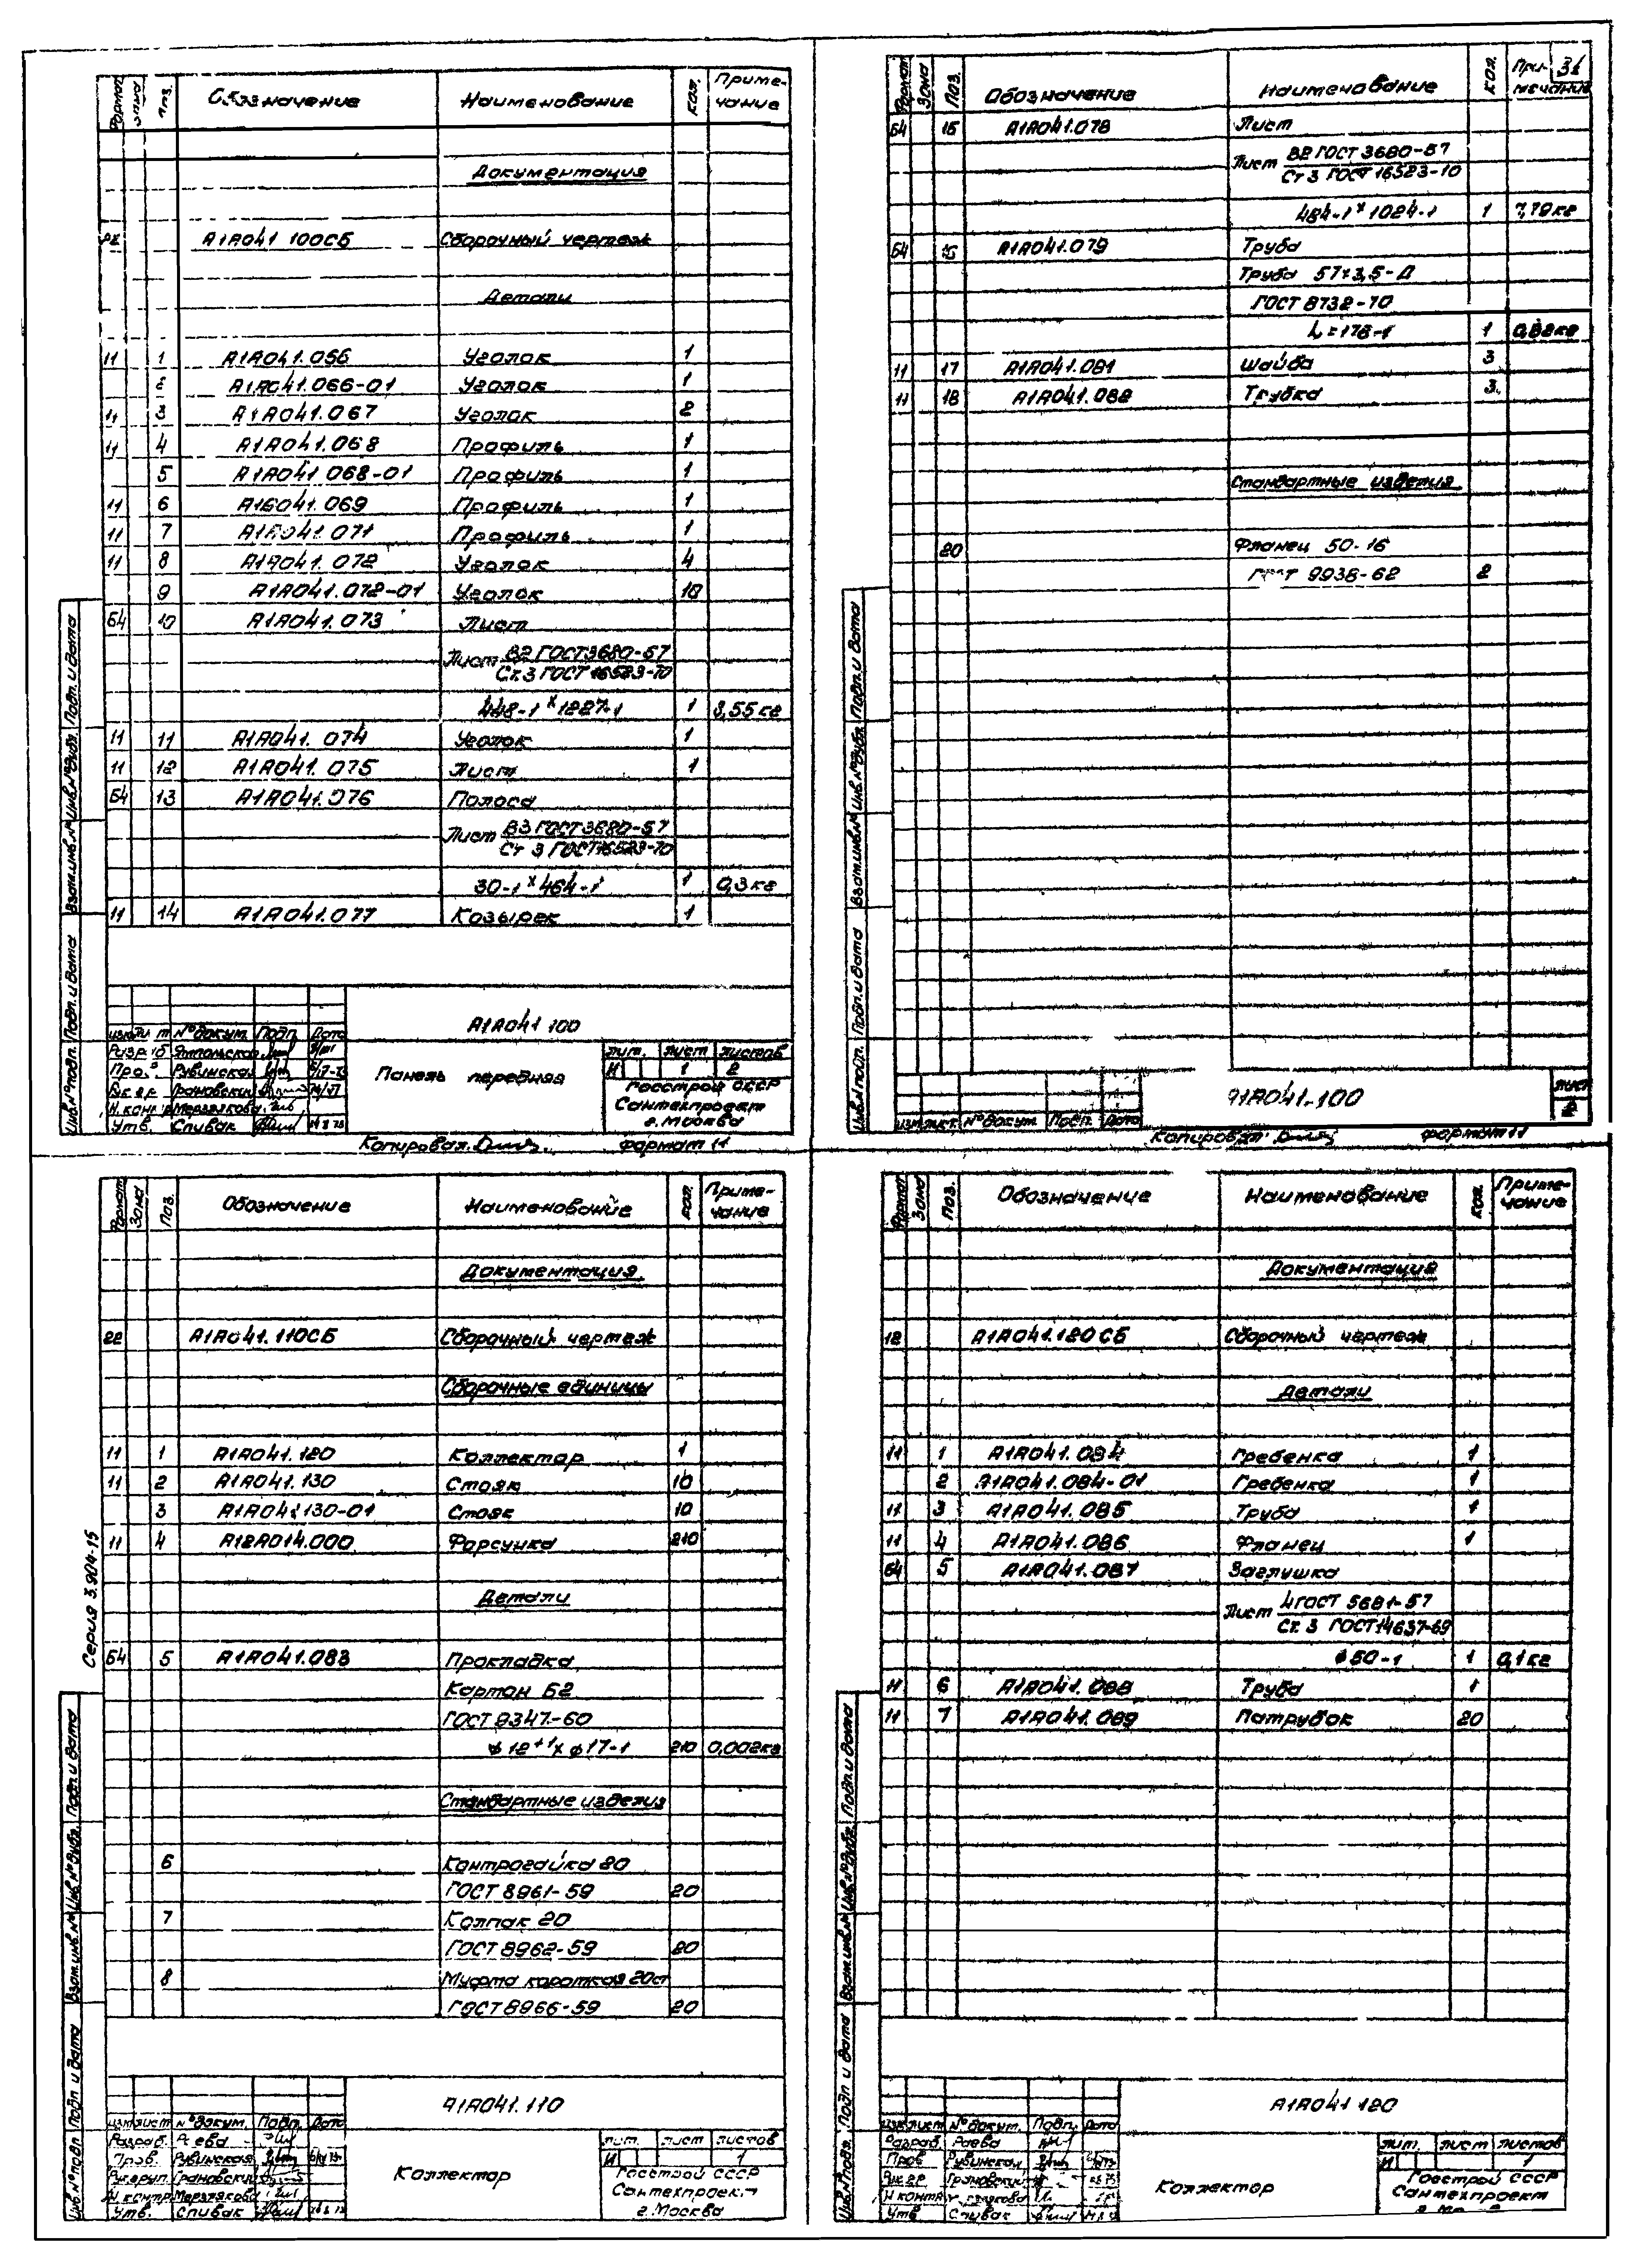 Формат Зона Поз. Обозначение Наименование Кол. Примечание
Документация
А1А041 100СБ Сборочный чертеж
Детали
11 1 А1А041.066 Уголок 1
2 А1А041.066-01 Уголок 1
11 3 А1А041.067 Уголок 2
11 4 А1А041.068 Профиль 1
5 А1А041.068-01 Профиль 1
11 6 А1Б041.069 Профиль 1
11 7 А1А041.071 Профиль 1
11 8 А1А041.072 Уголок 4
9 А1А041.072-01 Уголок 18
Б4 10 А1А041.073 Лист
Лист В2 ГОСТ 3680-57
Ст.3 ГОСТ 16523-70
448-1 х 1227-1 1 8,55 кг
11 11 А1А041.074 Уголок 1
11 12 А1А041.075 Лист 1
Б4 13 А1А041.076 Полоса
Лист В3 ГОСТ 3680-57
Ст 3 ГОСТ 16523-70
30-1 х 464-1 1 0,3 кг
11 14 А1А041.077 Козырек 1
А1А041 100
№ докум. Подп Дата
Разраб Ямпольская
Пров Рубинская
Рук.гр. Грановский
Н.контр Мерзлякова
Утв. Спивак
Панель передняя
Лит. Лист Листов
И 1 2
Госстрой СССР
Сантехпроект
г.Москва
Копировал. формат 11
Инв.№подл. Подп. и дата Взам.инв.№ Инв.№дубл. Подп. и дата
Формат Зона Поз. Обозначение Наименование Кол. Примечание 31
Б4 15 А1А041.078 Лист
Лист В2 ГОСТ 3680-57
Ст 3 ГОСТ 16523-70
484-1 х 1024-1 1 7,79 кг
Б4 16 А1А041.079 Труба
Труба 57х3,5-Д
ГОСТ 8732-70
L=178-1 1 0,82 кг
11 17 А1А041.081 Шайба 3
11 18 А1А041.082 Трубка 3
Стандартные изделия
20 Фланец 50-16
ГОСТ 9938-62 2
А1А041-100
Лист
2
изм лист. № докум. Подп. Дата
Копировал формат 11
Инв.№ подл. Подп. и дата Взам.инв.№ Инв.№дубл. Подп. и дата
Формат Зона Поз. Обозначение Наименование Кол. Примечание
Документация
22 А1А041.110СБ Сборочный чертеж
Сборочные единицы
11 1 А1А041.120 Коллектор 1
11 2 А1А041.130 Стояк 10
3 А1А041.130-01 Стояк 10
11 4 А12А014.000 Форсунка 210
Детали
Б4 5 А1А041.083 Прокладка
Картон Б2
ГОСТ 9347-60
ф 12+1 х ф17-1 210 0,002кг
Стандартные изделия
6 Контрогайка 20
ГОСТ 8961-59 20
7 Колпак 20
ГОСТ 8962-59 20
8 Муфта короткая 20ст
ГОСТ 8966-59 20
А1А041.110
изм лист № докум. Подп. Дата
Разраб. Раева
Пров. Рубинская
Рук.груп. Грановский
Н контр. Мерзлякова
Утв. Спивак
Коллектор
Лит. Лист Листов
И 1
Госстрой СССР
Сантехпроект
г.Москва
Серия 3.904-15
Инв.№подл Подп и дата Взам.инв.№ Инв.№дубл. Подп. и дата
Формат Зона Поз. Обозначение Наименование Кол. Примечание
Документация
12 А1А041.120СБ Сборочный чертеж
Детали
11 1 А1А041.084 Гребенка 1
2 А1А041.084-01 Гребенка 1
11 3 А1А041.085 Труба 1
11 4 А1А041.086 Фланец 1
Б4 5 А1А041.087 Заглушка
Лист 4 ГОСТ 5681-57
Ст. 3 ГОСТ 14637-69
ф 60-1 1 0,1 кг
11 6 А1А041.088 Труба 1
11 7 А1А041.089 Патрубок 20
А1А041 120
изм лист № докум. Подп. Дата
Разраб. Раева
Пров Рубинская
Рук.гр. Грановский
Н контр
Утв Спивак
Коллектор
Лит. Лист Листов
И 1
Госстрой СССР
Сантехпроект
Инв.№подл. Подп и дата Взам.инв.№ Инв.№дубл. Подп. и дата